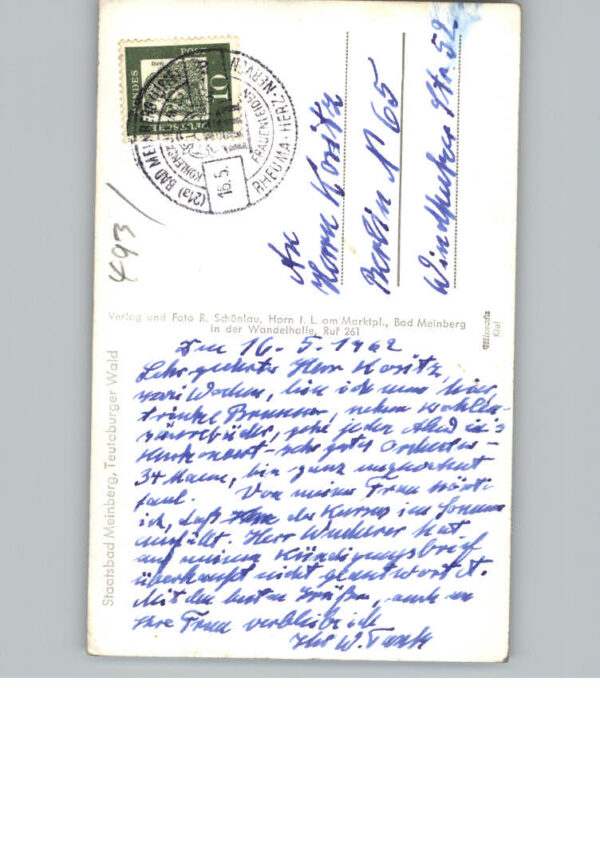 10
POST
(21a) BAD MEINBERG
RHEUMA-HERZ-NERVEN
FRAUENLEIDEN
16.5.
493/
An
Herrn Koritz
Berlin N 65
Str. 52
Verlag und Foto R. Schönlau, Horn i. L. am Marktpl., Bad Meinberg
in der Wandelhalle, Ruf 261
Staatsbad Meinberg, Teutoburger Wald
Den 16.5.1962
Sehr geehrter Herr Koritz,
zwei Wochen bin ich nun hier,
trinke Brunnen, nehme Kohlen-
säurebäder, gehe jeden Abend ins
Kurkonzert - sehr gutes Orchester -
34 Mann, bin ganz ungewohnt
faul. Von meiner Frau hörte
ich, daß der Kursus im Sommer
ausfällt. Herr Wuderer hat
auf meinen Kündigungsbrief
überhaupt nicht geantwortet.
Mit den besten Grüßen, auch an
Ihre Frau verbleibe ich
Ihr W.